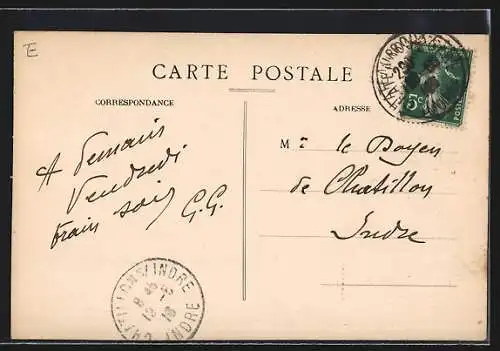 E
CARTE POSTALE
CORRESPONDANCE
ADRESSE
A Demain
Vendredi
train soir
G.G.
M. le Doyen
de Chatillon
Indre
5c
POSTES
CHATILLON S/ INDRE
INDRE